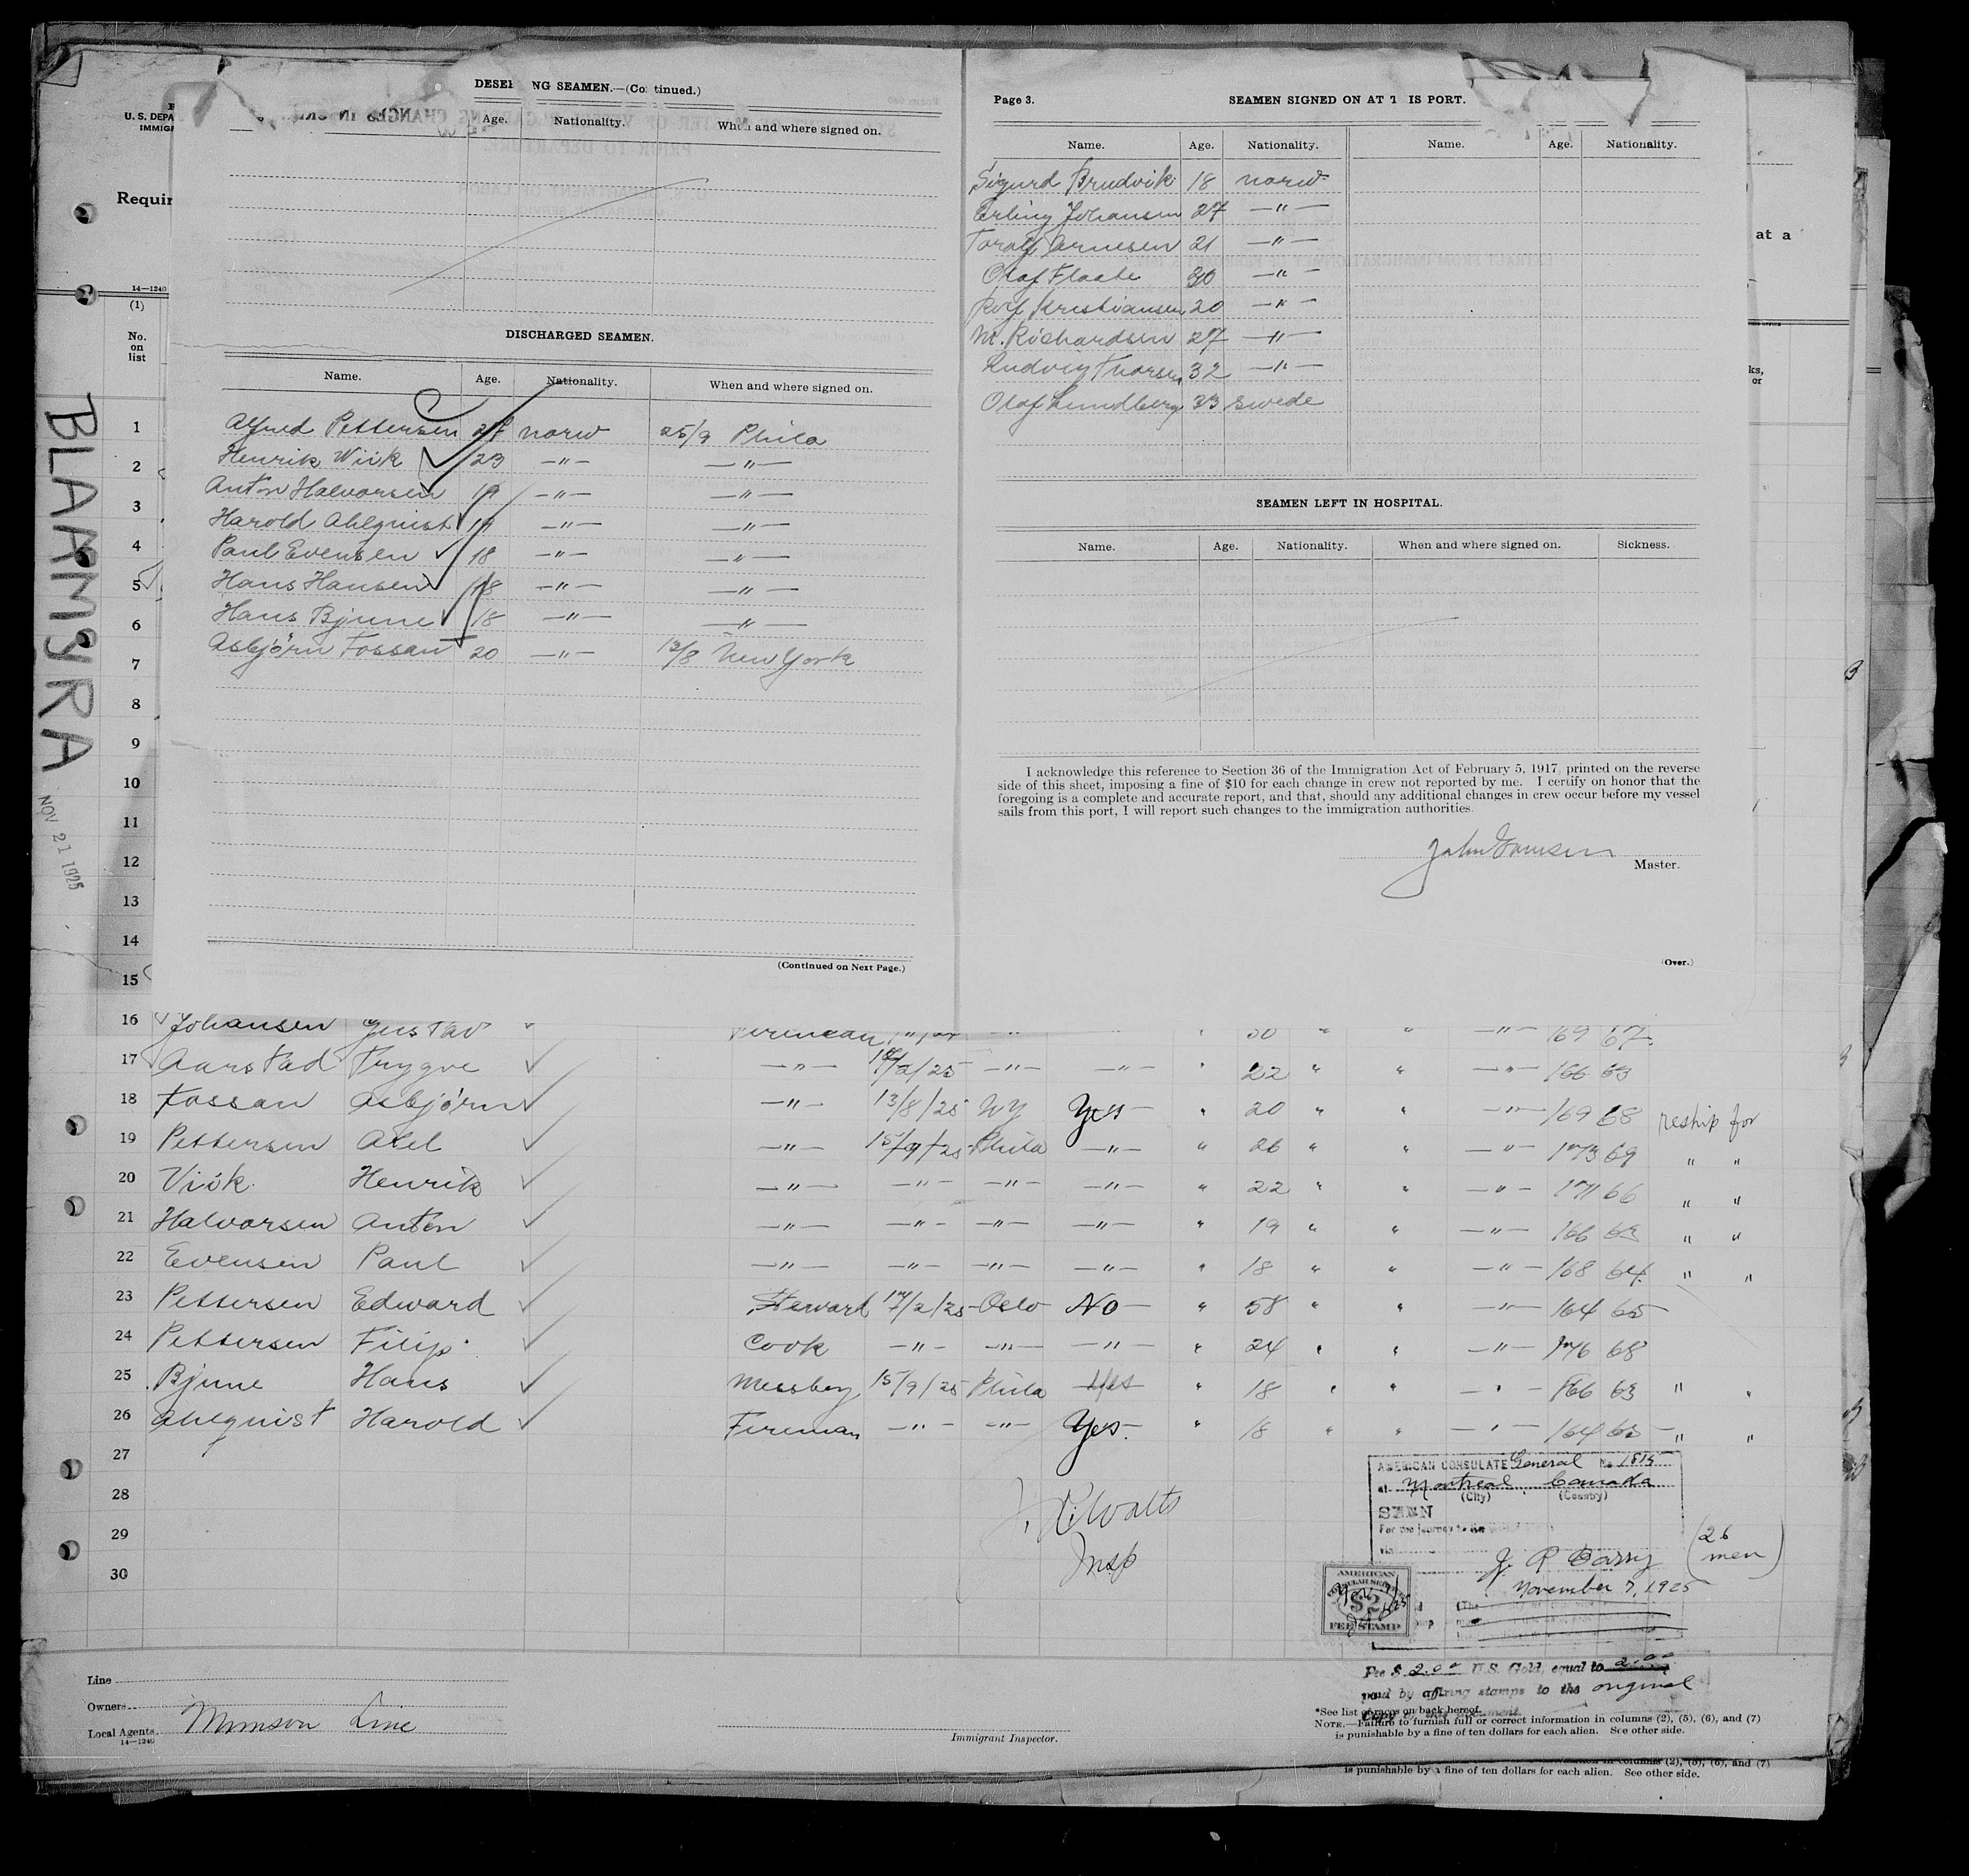 DESE NG SEAMEN.—(Co tinued.)
Age. Nationality. When and where signed on.
DISCHARGED SEAMEN.
Name. Age. Nationality. When and where signed on.
Alfred Pettersen 27 norw 25/9 Phila
Henrik Wiik 23 —"— —"—
Anton Halvorsen 19 —"— —"—
Harold Ahlquist 19 —"— —"—
Paul Evensen 18 —"— —"—
Hans Hansen 18 —"— —"—
Hans Bjune 18 —"— —"—
Asbjörn Fossan 20 —"— 13/8 New York
(Continued on Next Page.)
Page 3. SEAMEN SIGNED ON AT T IS PORT.
Name. Age. Nationality. Name. Age. Nationality.
Sigurd Brudvik 18 norw
Erling Johansen 27 —"—
Toralf Arnesen 21 —"—
Olaf Flaate 30 —"—
Rolf Kristiansen 20 —"—
M. Richardsen 27 —"—
Ludvig Thorsen 32 —"—
Olaf Lundberg 33 Swede
SEAMEN LEFT IN HOSPITAL.
Name. Age. Nationality. When and where signed on. Sickness.
I acknowledge this reference to Section 36 of the Immigration Act of February 5, 1917, printed on the reverse
side of this sheet, imposing a fine of $10 for each change in crew not reported by me. I certify on honor that the
foregoing is a complete and accurate report, and that, should any additional changes in crew occur before my vessel
sails from this port, I will report such changes to the immigration authorities.
Master.
(Over.)
U. S. DEPA
IMMIG
Requir
at a
14—1240
(1)
No.
on
list
ks,
or
BLAAMYRA
NOV 21 1925
1
2
3
4
5
6
7
8
9
10
11
12
13
14
15
16 Johansen Gustav 30 " " —"— 169 67
17 Aarstad Trygve —"— /2/25 —"— —"— " 22 " " —"— 166 63
18 Fossan Asbjörn —"— 13/8/25 NY Yes — " 20 " " —"— 169 68 reship for
19 Pettersen Axel —"— 15/9/25 Phila —"— " 26 " " —"— 173 69 " "
20 Viik Henrik —"— —"— —"— —"— " 22 " " —"— 171 66 " "
21 Halvorsen Anton —"— —"— —"— —"— " 19 " " —"— 166 63 " "
22 Evensen Paul —"— —"— —"— —"— " 18 " " —"— 168 64 " "
23 Pettersen Edward Steward 17/2/25 Oslo No — " 58 " " —"— 164 65
24 Pettersen Filip Cook —"— —"— —"— " 24 " " —"— 176 68
25 Bjune Hans Messboy 15/9/25 Phila Yes " 18 " " —"— 166 63 " "
26 Ahlquist Harold Fireman —"— —"— Yes. " 18 " " —"— 164 63 " "
27
28
29
30
Watts
Insp
AMERICAN CONSULATE General No. 1815
at Montreal, Canada
(City) (Country)
SEEN
For the journey to the
via
J. R. Barry
(26 men)
November 7, 1925
AMERICAN
CONSULAR SERVICE
$2
FEE STAMP
Fee $ 2.00 U.S. Gold, equal to 2.00
paid by affixing stamps to the original
copy of this document.
Line
Owners
Local Agents Munson Line
14—1240
Immigrant Inspector.
*See list of races on back hereof.
NOTE.—Failure to furnish full or correct information in columns (2), (5), (6), and (7)
is punishable by a fine of ten dollars for each alien. See other side.
in columns (2), (5), (6), and (7)
is punishable by a fine of ten dollars for each alien. See other side.